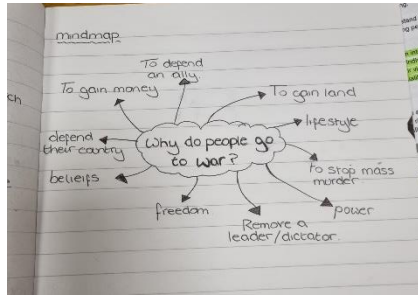 mindmap
To defend
an ally.
To gain money
To gain land
lifestyle
defend
their country
Why do people go
to war?
To stop mass
murder
beleifs
freedom
power
Remove a
leader/dictator.
ch